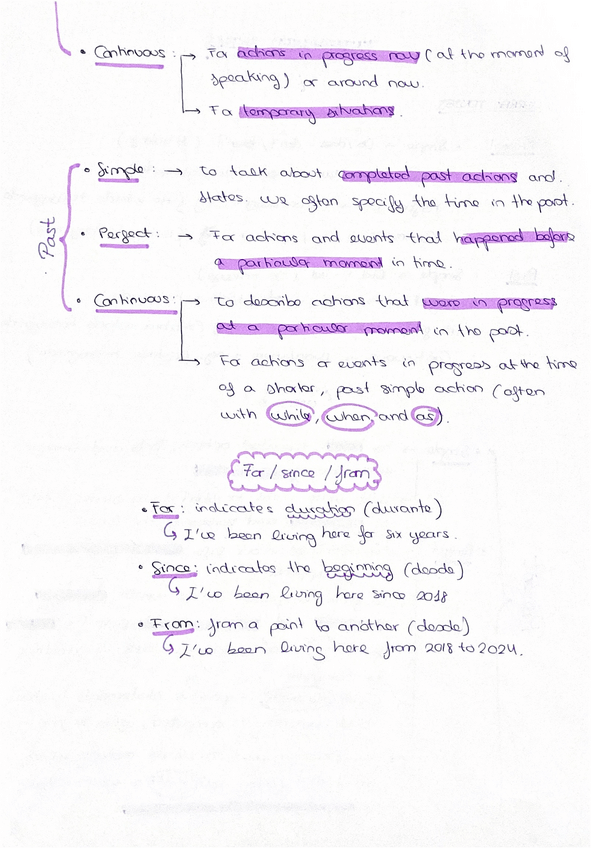 • Continuous: → For actions in progress now (at the moment of
speaking) or around now.
→ For temporary situations.
Past
• Simple: → to talk about completed past actions and
states. we often specify the time in the past.
• Perfect: → For actions and events that happened before
a particular moment in time.
• Continuous: → to describe actions that were in progress
at a particular moment in the past.
→ For actions or events in progress at the time
of a shorter, past simple action (often
with while, when, and as).
For / since / from
• For: indicates duration (durante)
↳ I've been living here for six years.
• Since: indicates the beginning (desde)
↳ I've been living here since 2018
• From: from a point to another (desde)
↳ I've been living here from 2018 to 2024.